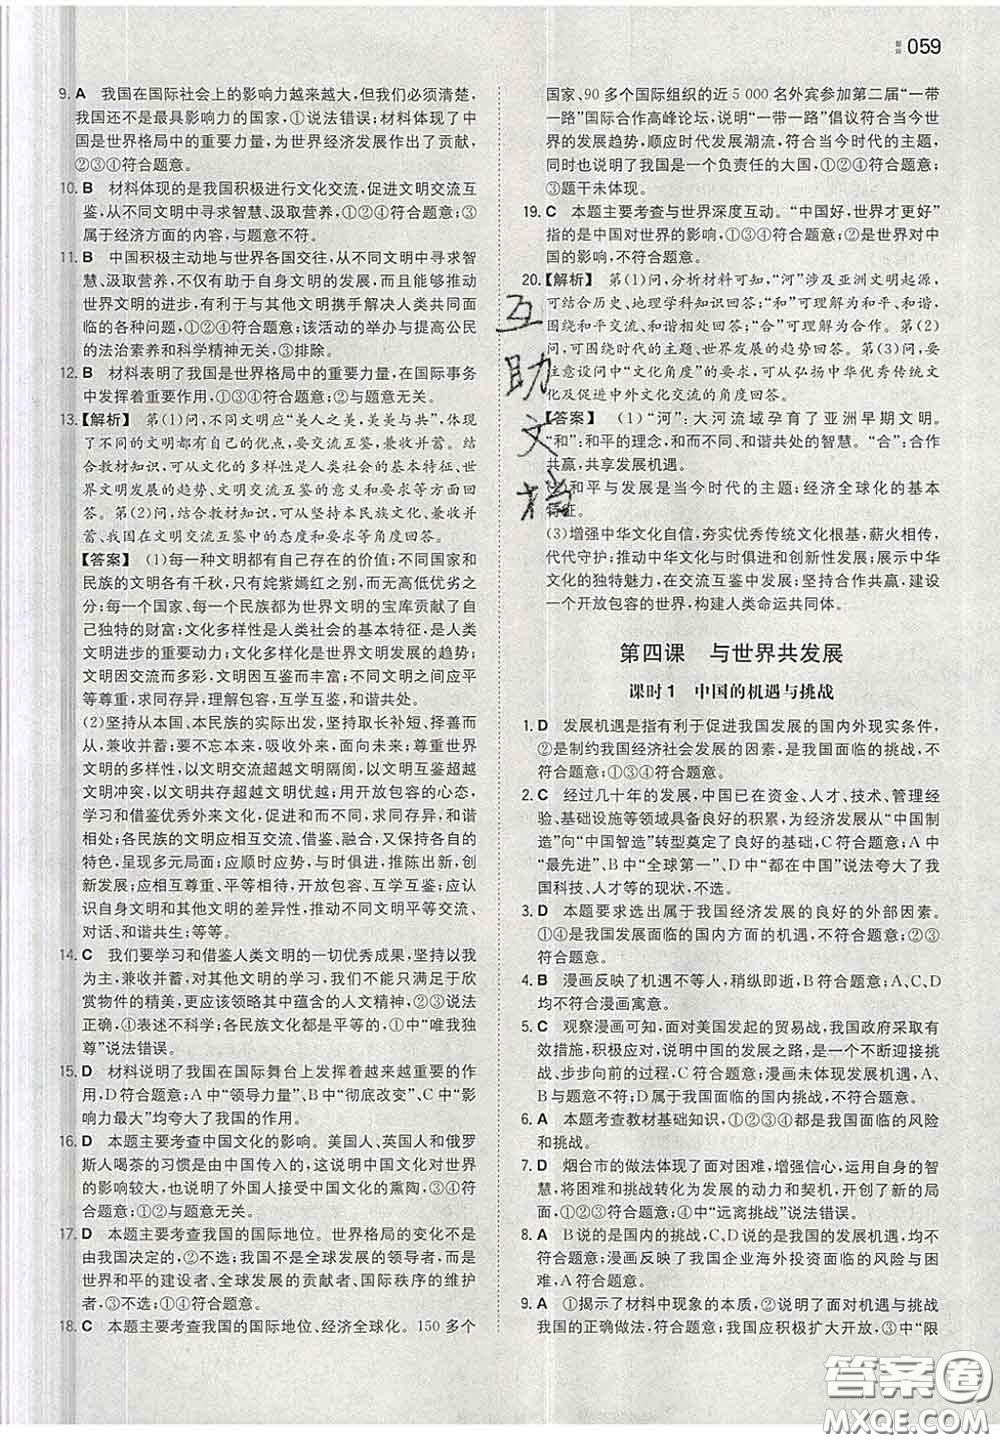 059
9. A 我国在国际社会上的影响力越来越大,但我们必须清楚,
我国还不是最具影响力的国家,①说法错误;材料体现了中
国是世界格局中的重要力量,为世界经济发展作出了贡献,
②③④符合题意。
10. B 材料体现的是我国积极进行文化交流,促进文明交流互
鉴,从不同文明中寻求智慧、汲取营养,①②④符合题意;③
属于经济方面的内容,与题意不符。
11. B 中国积极主动地与世界各国交往,从不同文明中寻求智
慧、汲取营养,不仅有助于自身文明的发展,而且能够推动
世界文明的进步,有利于与其他文明携手解决人类共同面
临的各种问题,①②④符合题意;该活动的举办与提高公民
的法治素养和科学精神无关,③排除。
12. B 材料表明了我国是世界格局中的重要力量,在国际事务
中发挥着重要作用,①③④符合题意;②与题意无关。
13.【解析】 第(1)问,不同文明应“美人之美,美美与共”,体现
了不同的文明都有自己的优点,要交流互鉴,兼收并蓄。结
合教材知识,可从文化的多样性是人类社会的基本特征、世
界文明发展的趋势、文明交流互鉴的意义和要求等方面回
答。第(2)问,结合教材知识,可从坚持本民族文化、兼收并
蓄、我国在文明交流互鉴中的态度和要求等角度回答。
【答案】 (1)每一种文明都有自己存在的价值;不同国家和
民族的文明各有千秋,只有姹紫嫣红之别,而无高低优劣之
分;每一个国家、每一个民族都为世界文明的宝库贡献了自
己独特的财富;文化多样性是人类社会的基本特征,是人类
文明进步的重要动力;文化多样化是世界文明发展的趋势;
文明因交流而多彩,文明因互鉴而丰富;文明交往互动应平
等尊重,求同存异,开放包容,互学互鉴,和谐共处。
(2)坚持从本国、本民族的实际出发,坚持取长补短、择善而
从,兼收并蓄;不忘本来,吸收外来,面向未来;尊重世界文
明的多样性,以文明交流超越文明隔阂,以文明互鉴超越
文明冲突,以文明共存超越文明优越;用开放包容的心态,
学习和借鉴优秀外来文化,促进和而不同,求同存异,和谐
相处;各民族的文明应相互交流、借鉴、融合,又保持各自的
特色,呈现多元局面;应顺时应势,与时俱进,推陈出新,
创新发展;应相互尊重、平等相待,开放包容、互学互鉴;应认
识自身文明和其他文明的差异性,推动不同文明平等交流、
对话、和谐共生;等等。
14. C 我们要学习和借鉴人类文明的一切优秀成果,坚持以我
为主,兼收并蓄,对其他文明的学习,我们不能只满足于欣
赏物件的精美,更应该领略其中蕴含的人文精神,②③说法
正确,①表述不科学;各民族文化都是平等的,④中“唯我独
尊”说法错误。
15. D 材料说明了我国在国际舞台上发挥着越来越重要的作
用,D符合题意;A中“领导力量”、B中“彻底改变”、C中“影
响力最大”均夸大了我国的作用。
16. D 本题主要考查中国文化的影响。美国人、英国人和俄罗
斯人喝茶的习惯是由中国传入的,这说明中国文化对世界
的影响较大,也说明了外国人接受中国文化的熏陶,③④符
合题意;①②与题意无关。
17. D 本题主要考查我国的国际地位。世界格局的变化不是
由我国决定的,②不选;我国不是全球发展的领导者,而是
世界和平的建设者、全球发展的贡献者、国际秩序的维护
者,③不选;①④符合题意。
18. C 本题主要考查我国的国际地位、经济全球化。150 多个
国家、90 多个国际组织的近 5 000 名外宾参加第二届“一带
一路”国际合作高峰论坛,说明“一带一路”倡议符合当今世
界的发展趋势,顺应时代发展潮流,符合当今时代的主题,
同时也说明了我国是一个负责任的大国,①②④符合题意;
③题干未体现。
19. C 本题主要考查与世界深度互动。“中国好,世界才更好”
指的是中国对世界的影响,①③④符合题意;②是世界对中
国的影响,不符合题意。
20.【解析】 第(1)问,分析材料可知,“河”涉及亚洲文明起源,
可结合历史、地理学科知识回答;“和”可理解为和平、和谐,
围绕和平交流、和谐相处回答;“合”可理解为合作。第(2)
问,可围绕时代的主题、世界发展的趋势回答。第(3)问,要
注意设问中“文化角度”的要求,可从弘扬中华优秀传统文
化及促进中外文化交流的角度回答。
【答案】 (1)“河”:大河流域孕育了亚洲早期文明。
“和”:和平的理念,和而不同、和谐共处的智慧。“合”:合作
共赢,共享发展机遇。
和平与发展是当今时代的主题;经济全球化的基本
特征。
(3)增强中华文化自信,夯实优秀传统文化根基,薪火相传,
代代守护;推动中华文化与时俱进和创新性发展;展示中华
文化的独特魅力,在交流互鉴中发展;坚持合作共赢,建设
一个开放包容的世界,构建人类命运共同体。
第四课 与世界共发展
课时1 中国的机遇与挑战
1. D 发展机遇是指有利于促进我国发展的国内外现实条件,
②是制约我国经济社会发展的因素,是我国面临的挑战,不
符合题意;①③④符合题意。
2. C 经过几十年的发展,中国已在资金、人才、技术、管理经
验、基础设施等领域具备良好的积累,为经济发展从“中国制
造”向“中国智造”转型奠定了良好的基础;A中
“最先进”、B中“全球第一”、D中“都在中国”说法夸大了我
国科技、人才等的现状,不选。
3. D 本题要求选出属于我国经济发展的良好的外部因素。
①④是我国发展面临的国内方面的机遇,不符合题意;②③
符合题意。
4. B 漫画反映了机遇不等人,稍纵即逝,B符合题意;A、C、D
均不符合漫画寓意。
5. C 观察漫画可知,面对美国发起的贸易战,我国政府采取有
效措施,积极应对,说明中国的发展之路,是一个不断迎接挑
战、步步向前的过程,C符合题意;漫画未涉及机遇,A、
B与题意不符;D属于我国面临的国内挑战,不符合题意。
6. A 本题考查教材基础知识,①②③④都是我国面临的风险
和挑战。
7. D 烟台市的做法体现了面对困难,增强信心,运用自身的智
慧,将困难和挑战转化为发展的动力和契机,开创了新的局
面,①②③符合题意;④中“远离挑战”说法错误。
8. A B说的是国内的挑战,C、D说的是我国的发展机遇,均不
符合题意;漫画反映了我国企业海外投资面临的风险与困
难,A符合题意。
9. A ①揭示了材料中现象的本质,②说明了面对机遇与挑战
我国的正确做法,符合题意;我国应积极扩大开放,③中“限
互
助
文
档
答案圈
MXQE.COM